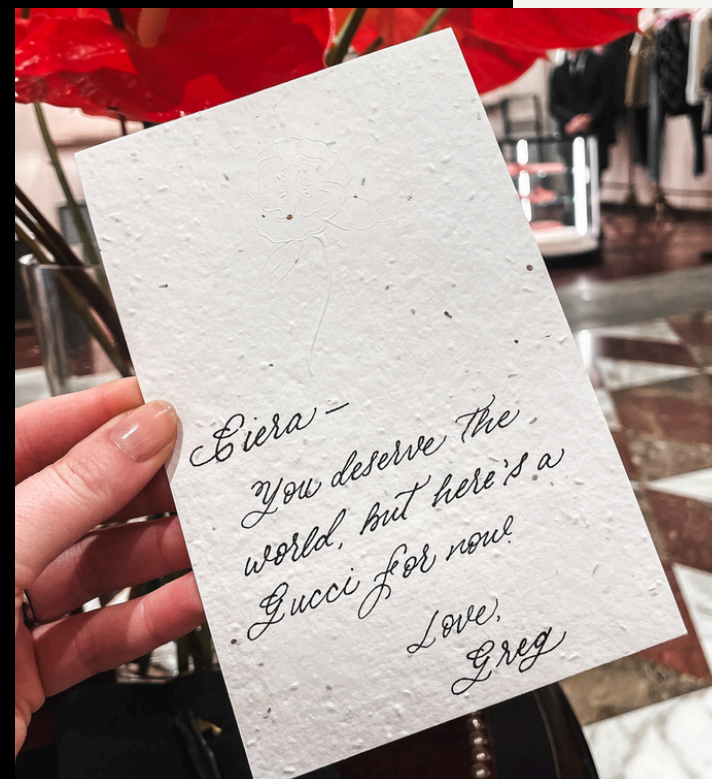 Ciera –
You deserve the
world, but here's a
Gucci for now!
Love,
Greg